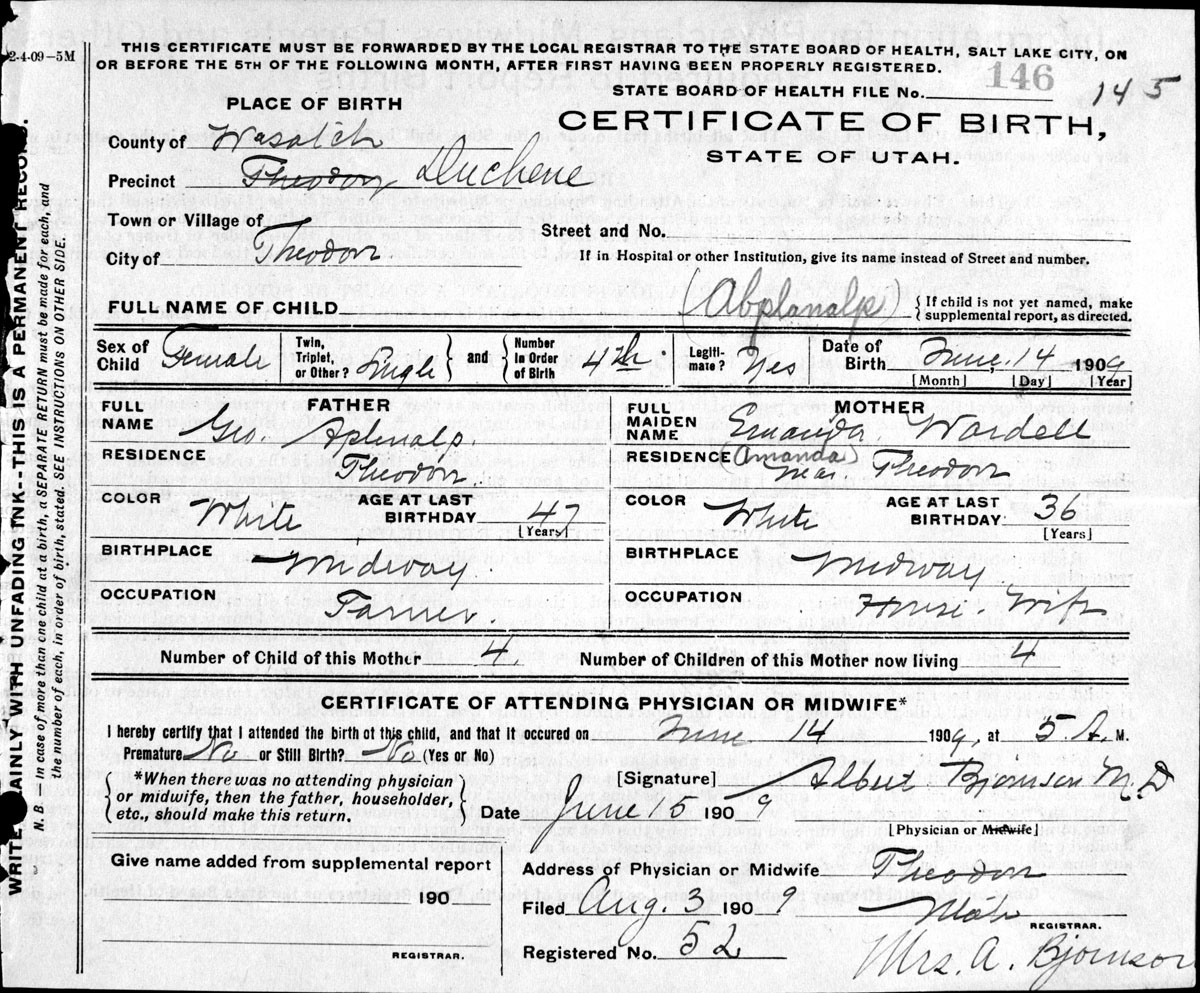 2-4-09—5M
THIS CERTIFICATE MUST BE FORWARDED BY THE LOCAL REGISTRAR TO THE STATE BOARD OF HEALTH, SALT LAKE CITY, ON
OR BEFORE THE 5TH OF THE FOLLOWING MONTH, AFTER FIRST HAVING BEEN PROPERLY REGISTERED.
STATE BOARD OF HEALTH FILE No. 146 145
PLACE OF BIRTH
CERTIFICATE OF BIRTH,
STATE OF UTAH.
County of Wasatch
Precinct Theodor Duchene
Town or Village of
City of Theodor
Street and No.
If in Hospital or other Institution, give its name instead of Street and number.
FULL NAME OF CHILD (Abplanalp)
{ If child is not yet named, make
supplemental report, as directed.
Sex of Child Female
Twin, Triplet, or Other? Single } and { Number in Order of Birth 4th.
Legitimate? Yes
Date of Birth June, 14 1909
[Month] [Day] [Year]
FATHER
FULL NAME Geo. Aplenalp.
RESIDENCE Theodor.
COLOR White AGE AT LAST BIRTHDAY 47
[Years]
BIRTHPLACE Midway
OCCUPATION Farmer.
MOTHER
FULL MAIDEN NAME Emanda Wardell
(Amanda)
RESIDENCE near Theodor
COLOR White AGE AT LAST BIRTHDAY 36
[Years]
BIRTHPLACE Midway
OCCUPATION House-Wife
Number of Child of this Mother 4. Number of Children of this Mother now living 4
CERTIFICATE OF ATTENDING PHYSICIAN OR MIDWIFE*
I hereby certify that I attended the birth of this child, and that it occured on June 14 1909, at 5 A. M.
Premature No or Still Birth? No (Yes or No)
{ *When there was no attending physician
or midwife, then the father, householder,
etc., should make this return. }
[Signature] Albert Bjornson M.D
Date June 15 1909
[Physician or Midwife]
Give name added from supplemental report
190
REGISTRAR.
Address of Physician or Midwife Theodor
Utah
Filed Aug. 3 1909
REGISTRAR.
Registered No. 52
Mrs. A. Bjornson
WRITE PLAINLY WITH UNFADING INK--THIS IS A PERMANENT RECORD.
N. B.—In case of more than one child at a birth, a SEPARATE RETURN must be made for each, and
the number of each, in order of birth, stated. SEE INSTRUCTIONS ON OTHER SIDE.